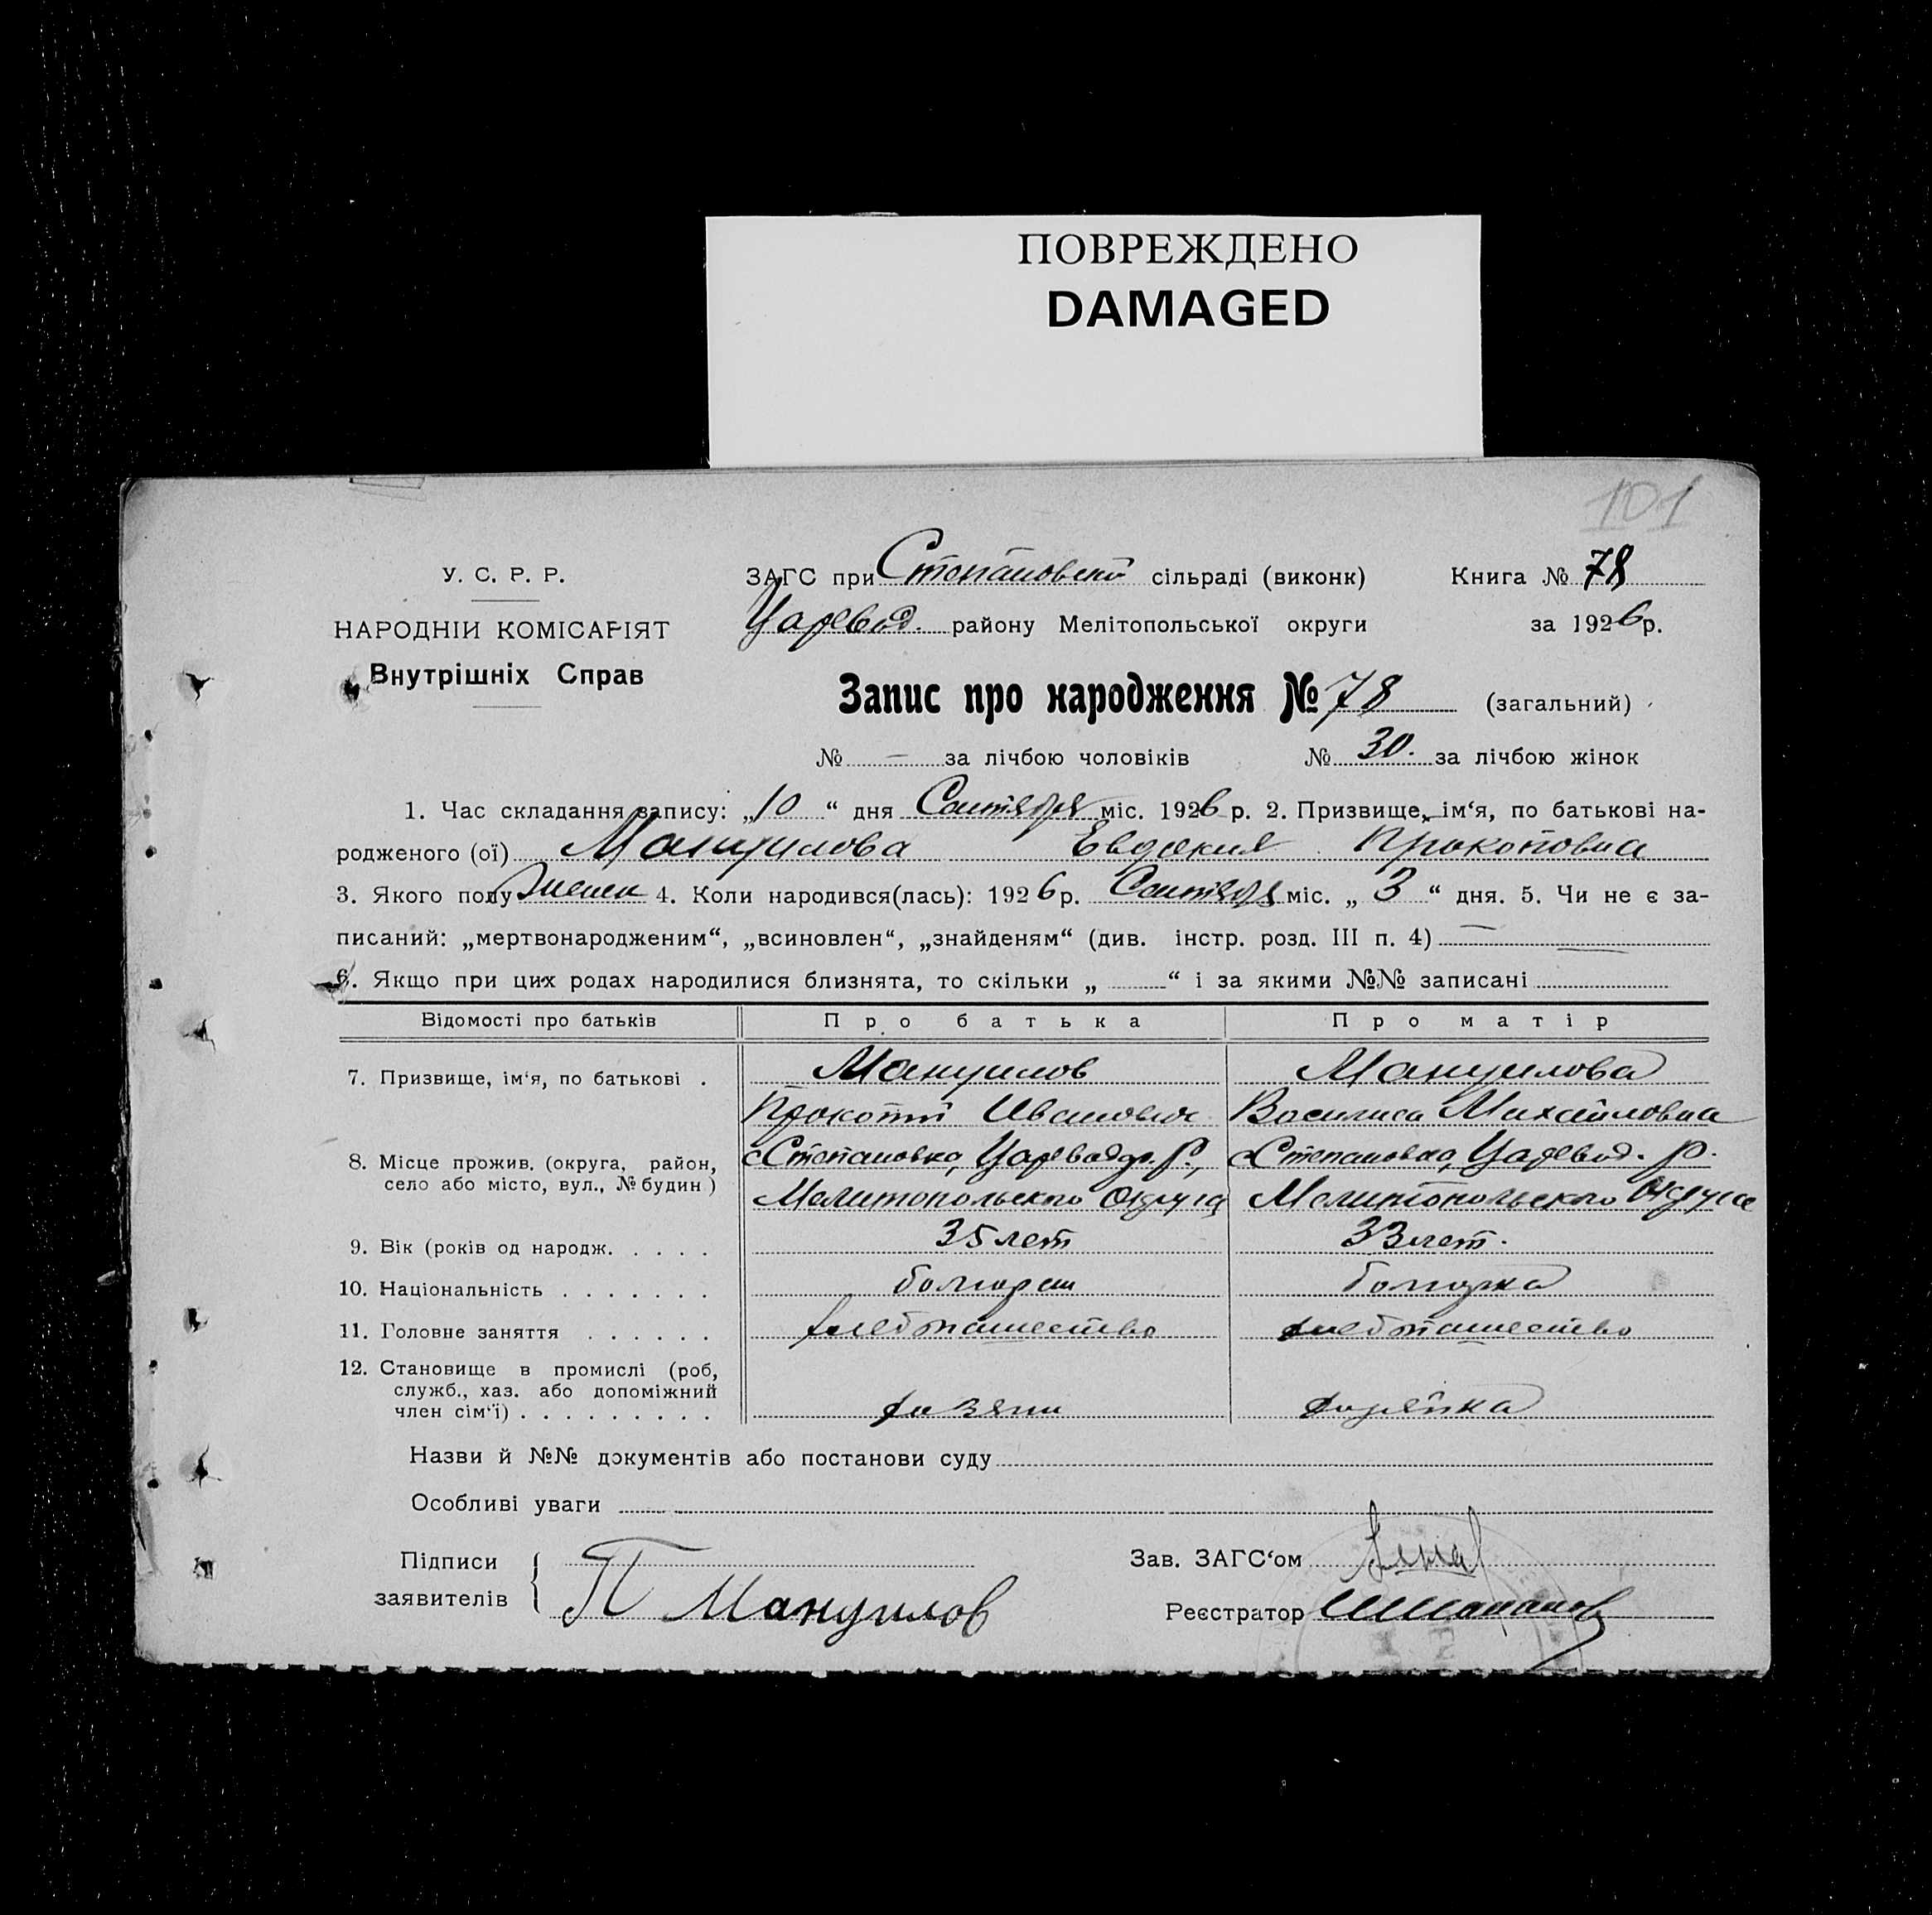 ПОВРЕЖДЕНО
DAMAGED
101
У. С. Р. Р.
НАРОДНІЙ КОМІСАРІЯТ
Внутрішніх Справ
ЗАГС при Степановской сільраді (виконк) Книга № 78
Царевод. району Мелітопольської округи за 1926 р.
Запис про народження № 78 (загальний)
№ — за лічбою чоловіків № 30. за лічбою жінок
1. Час складання запису: „10“ дня Сентября міс. 1926 р. 2. Призвище, ім‘я, по батькові на-
родженого (ої) Мануилова Евдокия Прокоповна
3. Якого полу женск 4. Коли народився(лась): 1926 р. Сентября міс. „3“ дня. 5. Чи не є за-
писаний: „мертвонародженим“, „всиновлен“, „знайденям“ (див. інстр. розд. III п. 4) —
6. Якщо при цих родах народилися близнята, то скільки „ “ і за якими №№ записані
Відомості про батьків Про батька Про матір
7. Призвище, ім‘я, по батькові . Мануилов Мануилова
Прокопий Иванович Василиса Михайловна
8. Місце прожив. (округа, район, село або місто, вул., № будин) с Степановка, Цареводр. Р., с Степановка, Царевод. Р.
Мелитопольского Округа Мелитопольского Округа
9. Вік (років од народж. . . . . 35 лет 33 лет.
10. Національність . . . . . . . болгарин болгарка
11. Головне заняття . . . . . . хлебопашество хлебопашество
12. Становище в промислі (роб, служб., хаз. або допоміжний член сім‘ї) . . . . . . . . . хозяин хозяйка
Назви й №№ документів або постанови суду
Особливі уваги
Підписи заявителів { П Мануилов
Зав. ЗАГС‘ом
Реєстратор